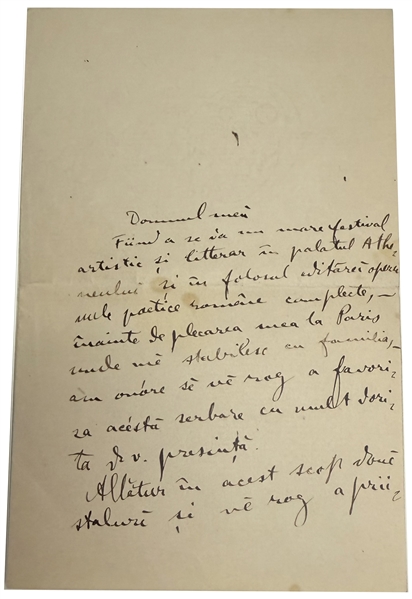 Domnul meŭ
Fiind a se da un mare festival
artistic și litterar în palatul Athe-
neului și în folosul editărei opere
mele poetice române complecte, –
înainte de plecarea mea la Paris
unde mĕ stabilesc cu familia, –
am onóre sĕ vĕ rog a favori-
za acéstă serbare cu mult dori-
ta d. v. presință.
Allătur în acest scop doue
staluri și vĕ rog a prii-